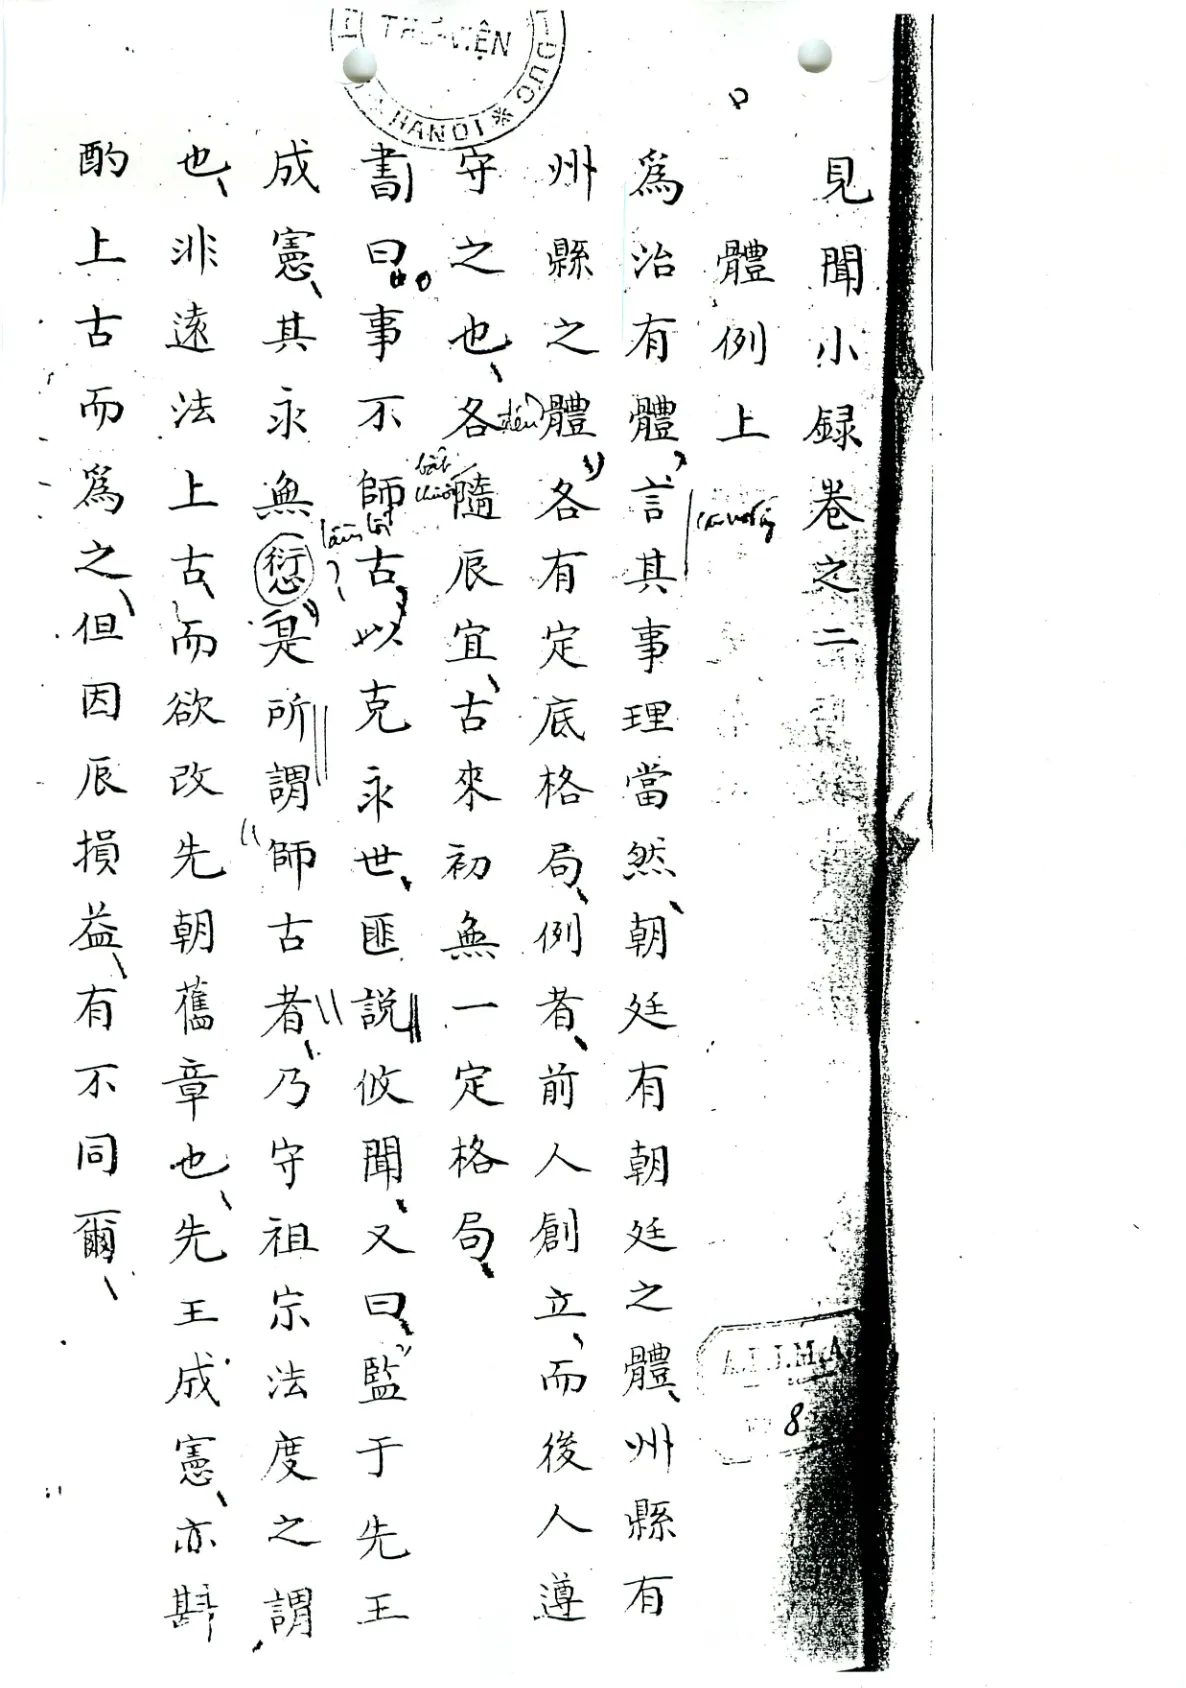 見聞小録卷之二
體例上
爲治有體言其事理當然朝廷有朝廷之體州縣有
州縣之體各有定底格局例者前人創立而後人遵
守之也各隨辰宜古來初無一定格局
書曰事不師古以克永世匪説攸聞又曰監于先王
成憲其永無愆是所謂師古者乃守祖宗法度之謂
也非遠法上古而欲改先朝舊章也先王成憲亦斟
酌上古而爲之但因辰損益有不同爾
THƯ VIỆN
HANOI
8